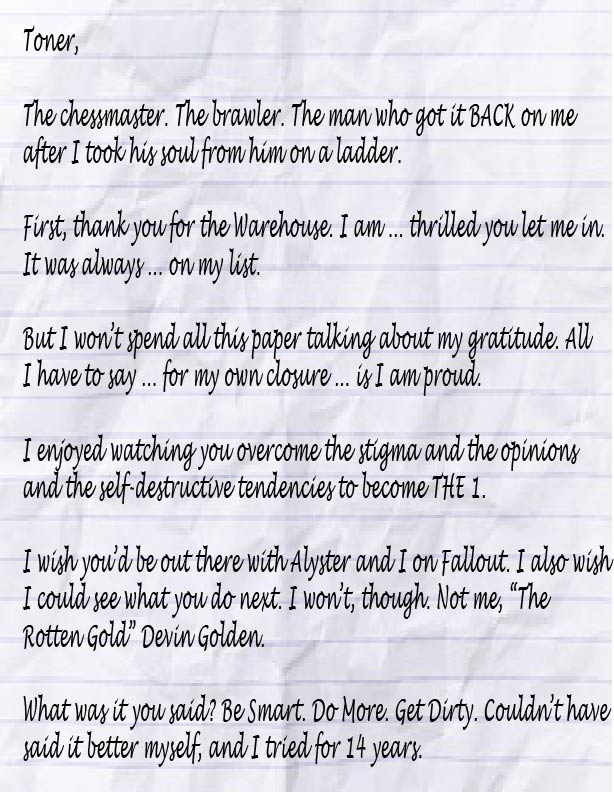 Toner,
The chessmaster. The brawler. The man who got it BACK on me
after I took his soul from him on a ladder.
First, thank you for the Warehouse. I am ... thrilled you let me in.
It was always ... on my list.
But I won't spend all this paper talking about my gratitude. All
I have to say ... for my own closure ... is I am proud.
I enjoyed watching you overcome the stigma and the opinions
and the self-destructive tendencies to become THE 1.
I wish you'd be out there with Alyster and I on Fallout. I also wish
I could see what you do next. I won't, though. Not me, “The
Rotten Gold” Devin Golden.
What was it you said? Be Smart. Do More. Get Dirty. Couldn't have
said it better myself, and I tried for 14 years.